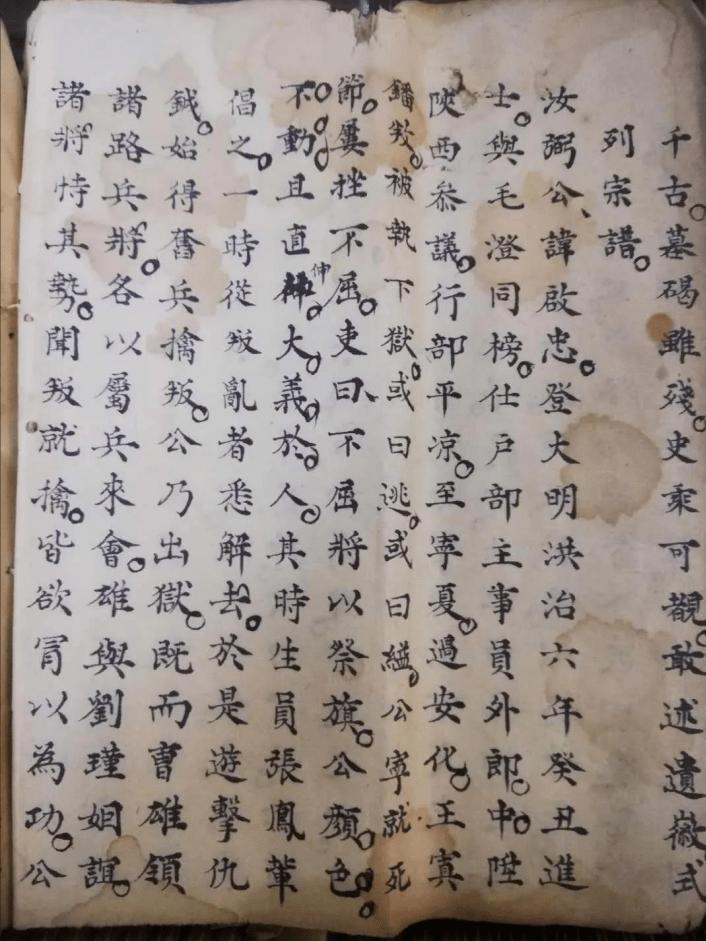 千古。墓碣雖殘。史乘可觀。敢述遺徽。式
列宗譜。
汝弼公、諱啟忠。登大明洪治六年癸丑進
士。與毛澄同榜。仕戶部主事員外郎。中。陞
陝西叅議。行部平凉。至寧夏。過安化。王寘
鐇叛。被執下獄。或曰逃。或曰縊。公寧就死
節。屢挫不屈。吏曰、不屈將以祭旗。公顏。色。
不動。且直伸。大。義。於。人。其時生員張鳳輩
倡之。一時從叛亂者悉解去。於是遊擊仇
鉞。始得奮兵擒叛。公乃出獄。既而曹雄領
諸路兵將。各以屬兵來會。雄與劉瑾姻誼。
諸將恃其勢。聞叛就擒。皆欲冐以為功。公